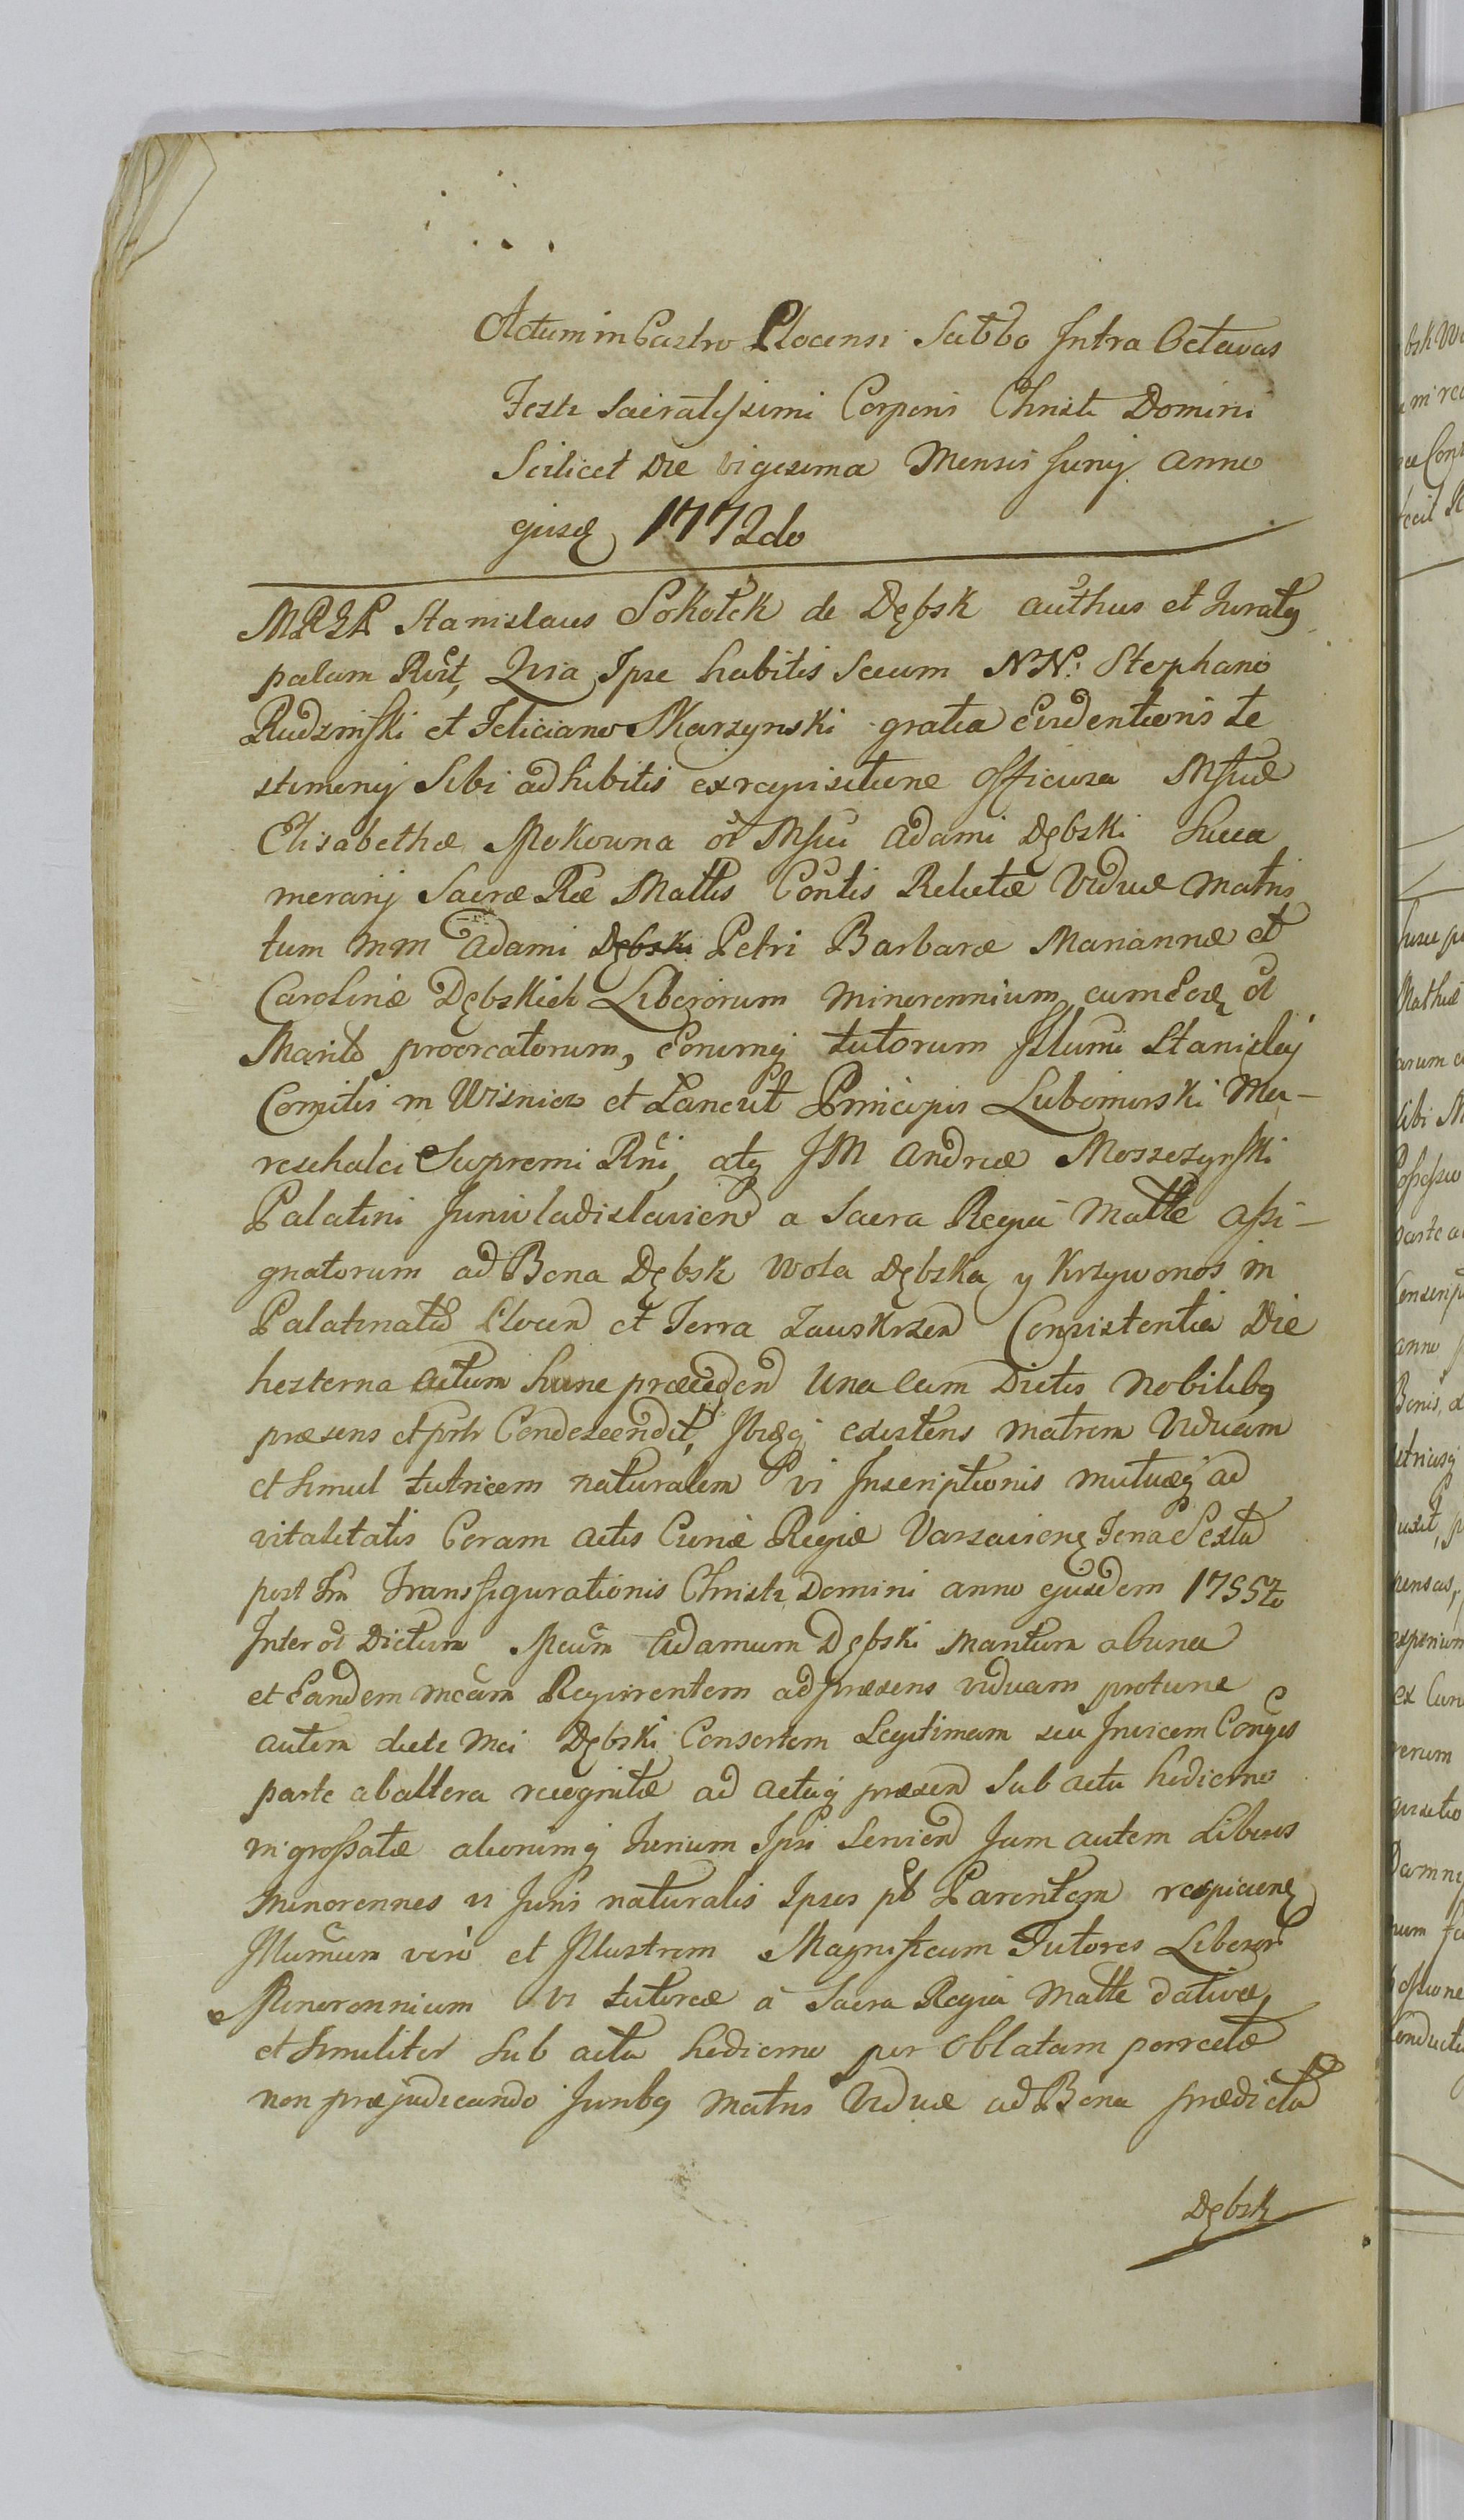 Actum in Castro Plocensi Sabbo Intra Octavas
Festi Sacratissimi Corporis Christi Domini
Scilicet Die vigesima Mensis Junij Anno
ejusd 1772do
Stanislaus Sokołek de Dębsk authus et Juratq
palam Rcit, Quia Ipse habitis Secum NN: Stephano
Rudzinski et Feliciano Skarzynski gratia Evidentioris te
stimonij Sibi adhibitis ex reqvisitione officiosa Msticæ
Elisabethæ Mokowna ol Mfci Adami Dębski Succa
merarij Sacræ Ræ Mattis Contis Relictæ Viduæ Matris
tum MM Adami Dębski Petri Barbaræ Mariannæ et
Carolinæ Dębskich Liberorum Minorennium, cum Eod ol
Marito procreatorum, Eorumq tutorum Illumi Stanislaj
Comitis in Wisnicz et Lancut Principis Lubomirski Ma-
reschalci Supremi Rni, atq JM Andreæ Moszczynski
Palatini Juniuladislavien a Sacra Regia Matte assi-
gnatorum ad Bona Dębsk Wola Dębska y Krzywonos in
Palatinatu Plocen et Terra Zauskrzen Consistentia Die
hesterna actum hunc præceden Una Cum Dictis Nobilibq
præsens et pntr Condescendit, Ibidq existens matrem Viduam
et simul tutricem naturalem vi Inscriptionis mutuæq ad
vitalitatis Coram Actis Curiæ Regiæ Varsavien Feria Sexta
post Fm Transfigurationis Christi Domini anno ejusdem 1755to
Inter ol Dictum Mcum Adamum Dębski Maritum ab una
et Eandem Mcam Reqvirentem ad præsens viduam pro tunc
autem dicti Mci Dębski Consortem Legitimam seu Invicem Conges
parte ab altera recognitæ ad actaq præsen Sub actu hodierno
ingrossatæ aliorumq Jurium Ipsi Servien Jam autem Liberos
Minorennes vi Juris naturalis Ipsos pt Parentem respicien
Illumum vero et Illustrem Magnificum Tutores Liberor
Minorennium vi tutoreæ a Sacra Regia Matte dativæ,
et Similiter Sub actu hodierno per Oblatam porrectæ
non præjudicando Juribq Matris Viduæ ad Bona prædicta
Dębsk